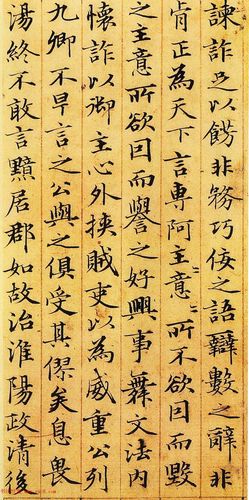 諫詐足以餝非務巧佞之語辯數之辭非
肯正為天下言專阿主意〻所不欲因而毀
之主意所欲因而譽之好興事舞文法內
懷詐以御主心外挾賊吏以為威重公列
九卿不早言之公與之俱受其僇矣息畏
湯終不敢言黯居郡如故治淮陽政清後